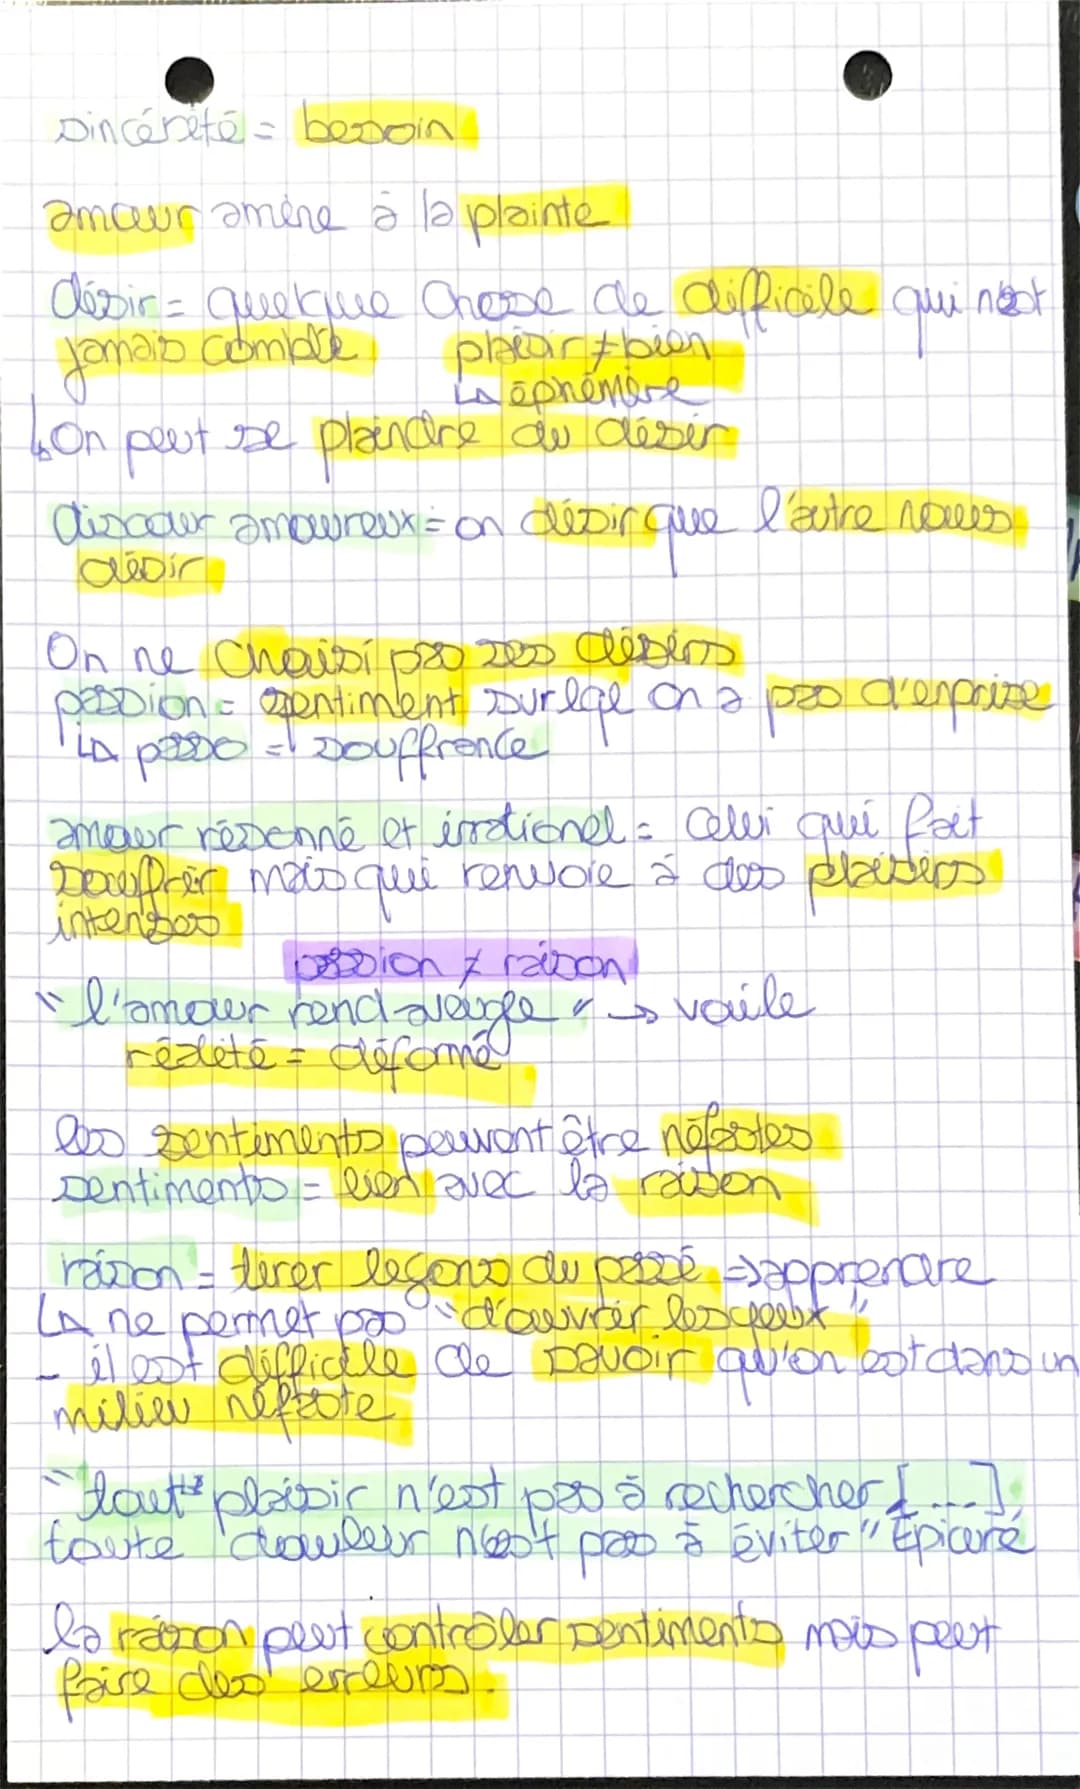 sincérité = besoin
amour amène à la plainte
désir = quelque chose de difficile qui n'est
jamais comblé plaisir ≠ bien
↳ éphémère
↳ On peut se plaindre du désir
discour amoureux = on désir que l'autre nous
désir
On ne choisi pas ses désirs
passion = sentiment sur lqe on a pas d'enprise
↳ passo = souffrance
amour résonné et irrationel = celui qui fait
souffrir mais qui renvoie à des plaisirs
intenses
passion ≠ raison
"l'amour rend aveugle" → voile
réalité = déformé
les sentiments peuvent être néfastes
sentiments = lien avec la raison
raison = tirer leçons du passé ⇒ apprendre
↳ ne permet pas "d'ouvrir les yeux"
- il est difficile de savoir qu'on est dans un
milieu néfaste
"tout plaisir n'est pas à rechercher [...]
toute douleur n'est pas à éviter" Épicure
la raison peut contrôler sentiments mais peut
faire des erreurs.